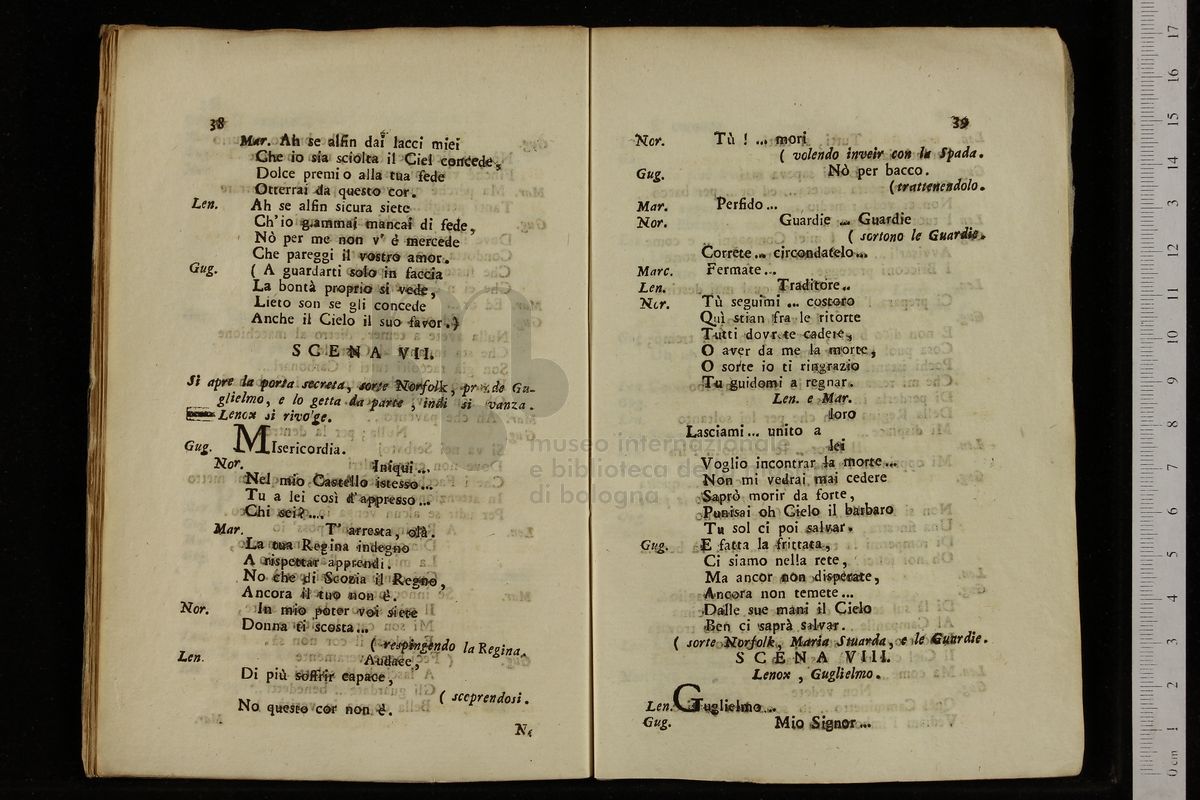 38
Mar. Ah se alfin dai lacci miei
Che io sia sciolta il Ciel concede,
Dolce premio alla tua fede
Otterrai da questo cor.
Len. Ah se alfin sicura siete
Ch'io giammai mancai di fede,
Nò per me non v' è mercede
Che pareggi il vostro amor.
Gug. ( A guardarti solo in faccia
La bontà proprio si vede,
Lieto son se gli concede
Anche il Cielo il suo favor.)
SCENA VII.
Si apre la porta secreta, sorte Norfolk, prende Gu-
glielmo, e lo getta da parte, indi si avanza.
Lenox si rivolge.
Gug. Misericordia.
Nor. Iniqui...
Nel mio Castello istesso...
Tu a lei così d'appresso...
Chi sei?....
Mar. T' arresta, olà.
La tua Regina indegno
A rispettar apprendi.
No che di Scozia il Regno,
Ancora il tuo non è.
Nor. In mio poter voi siete
Donna ti scosta...
( respingendo la Regina.
Len. Audace,
Di più soffrir capace,
( scoprendosi.
No questo cor non è.
N.
39
Nor. Tù ! ... mori
( volendo inveir con la Spada.
Gug. Nò per bacco.
(trattenendolo.
Mar. Perfido...
Nor. Guardie ... Guardie
( sortono le Guardie.
Correte... circondatelo...
Marc. Fermate...
Len. Traditore..
Nor. Tù seguimi ... costoro
Quì stian fra le ritorte
Tutti dovrete cadere,
O aver da me la morte,
O sorte io ti ringrazio
Tu guidami a regnar.
Len. e Mar.
loro
Lasciami... unito a
lei
Voglio incontrar la morte...
Non mi vedrai mai cedere
Saprò morir da forte,
Punisai oh Cielo il barbaro
Tu sol ci poi salvar.
Gug. E fatta la frittata,
Ci siamo nella rete,
Ma ancor non disperate,
Ancora non temete...
Dalle sue mani il Cielo
Ben ci saprà salvar.
( sorte Norfolk, Maria Stuarda, e le Guardie.
SCENA VIII.
Lenox, Guglielmo.
Len. Guglielmo...
Gug. Mio Signor...
museo internazionale
e biblioteca de
di bologna
0 cm 1 2 3 4 5 6 7 8 9 10 11 12 13 14 15 16 17